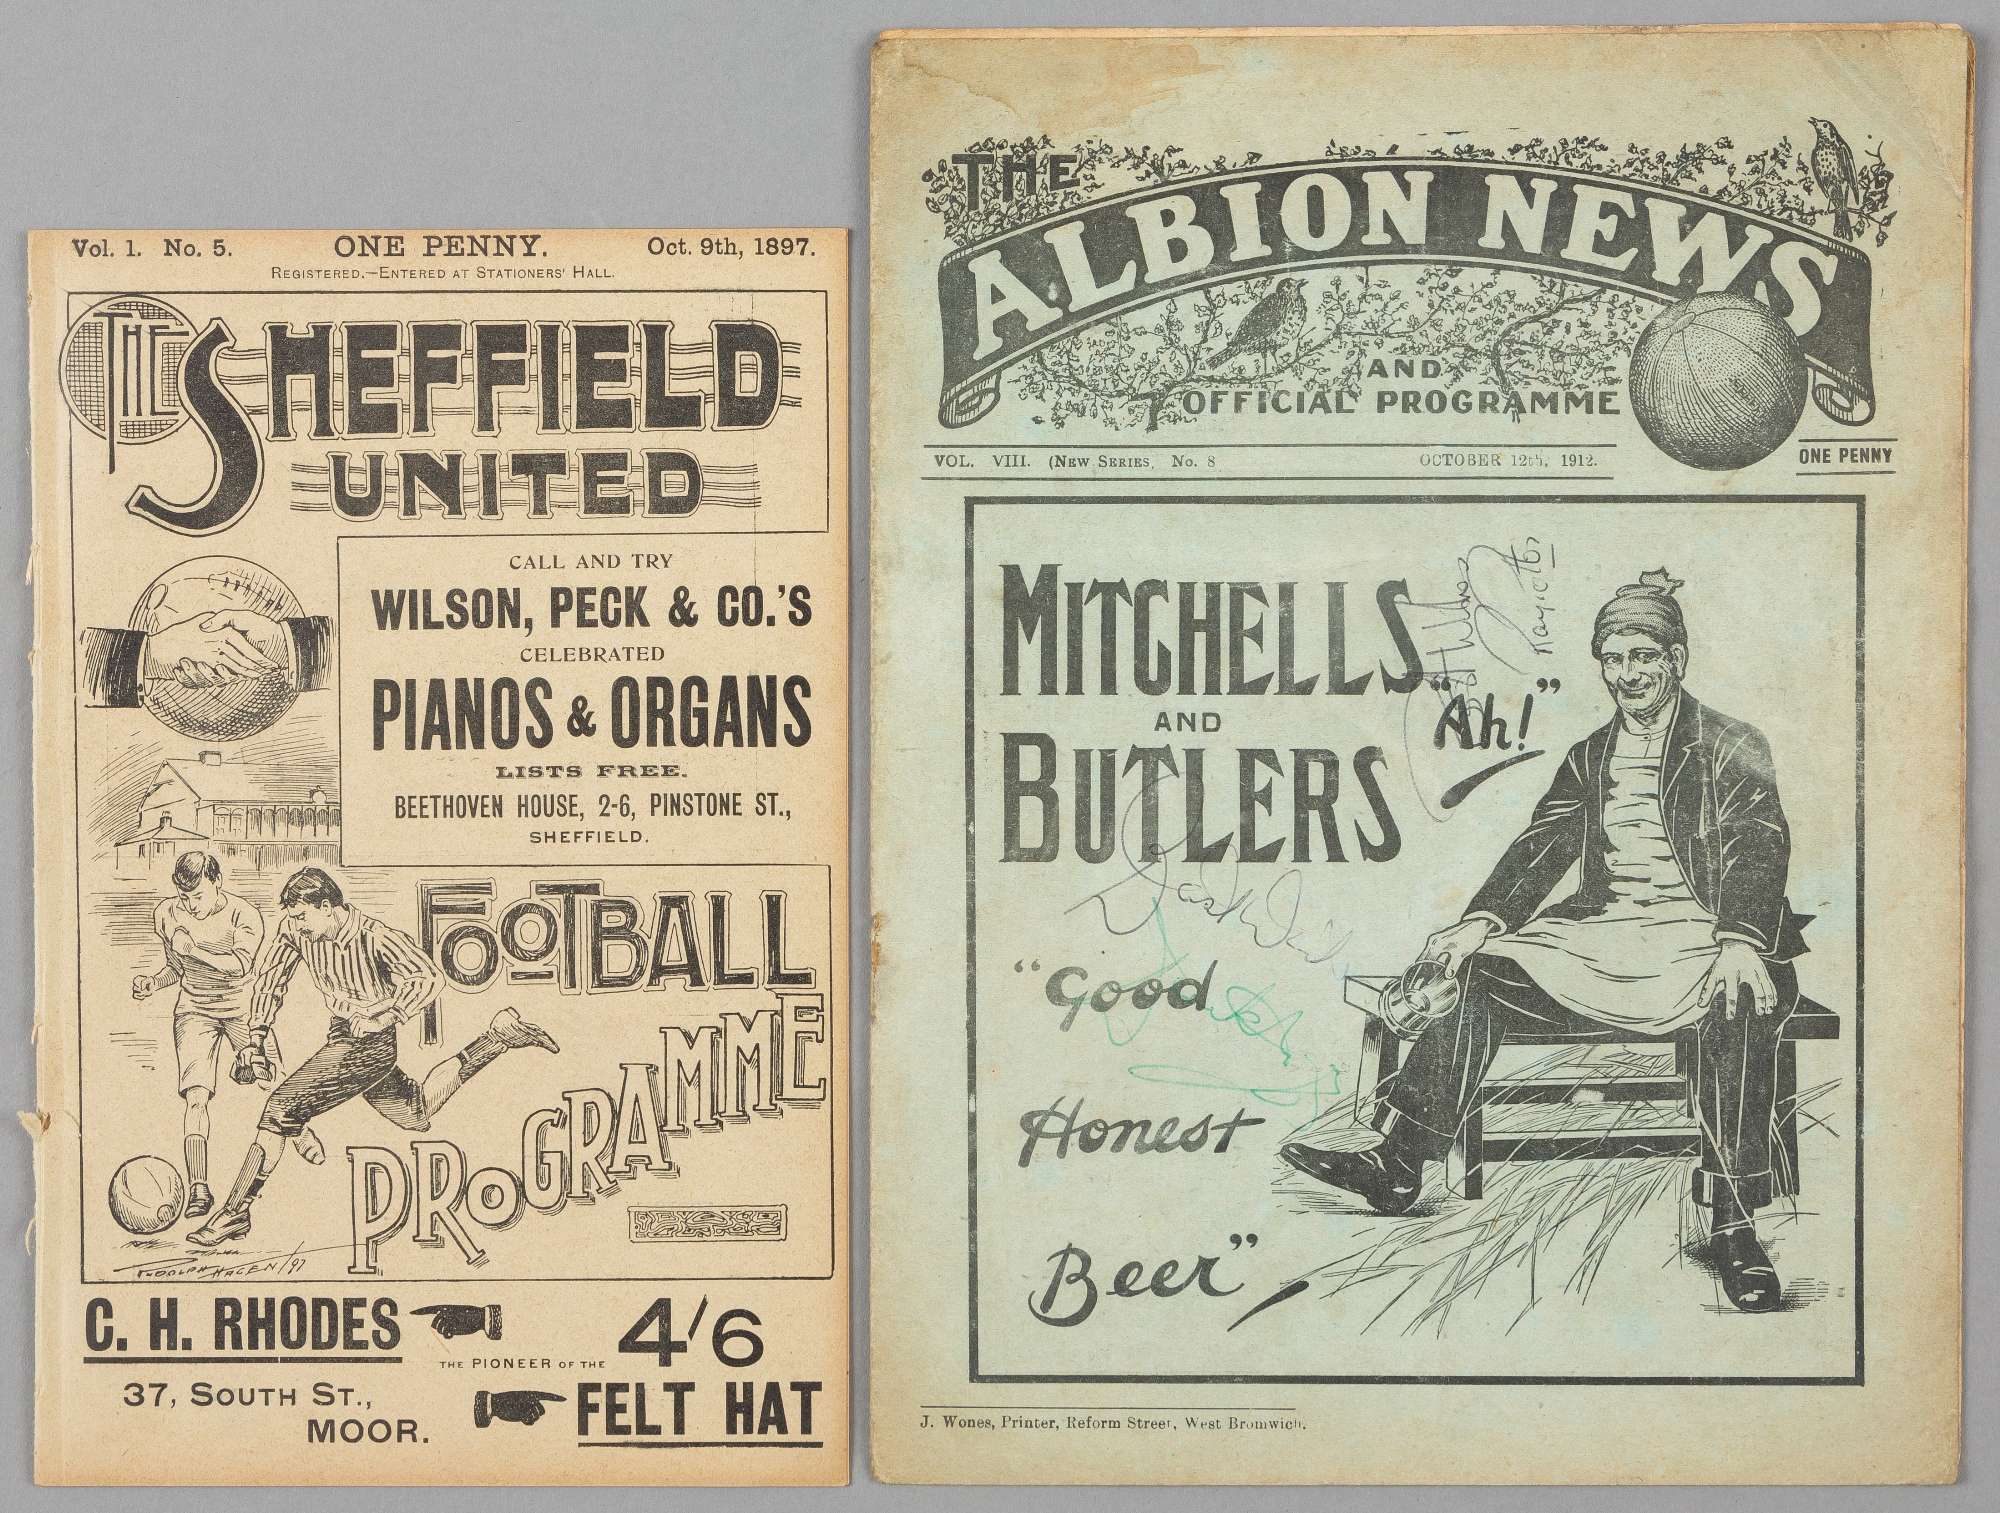 Vol. 1. No. 5. ONE PENNY. Oct. 9th, 1897.
REGISTERED.—ENTERED AT STATIONERS' HALL.
THE SHEFFIELD
UNITED
CALL AND TRY
WILSON, PECK & CO.'S
CELEBRATED
PIANOS & ORGANS
LISTS FREE.
BEETHOVEN HOUSE, 2-6, PINSTONE ST.,
SHEFFIELD.
FOOTBALL
PROGRAMME
RUDOLPH HAGEN/97
C. H. RHODES
37, SOUTH ST.,
MOOR.
THE PIONEER OF THE
4/6
FELT HAT
THE
ALBION NEWS
AND
OFFICIAL PROGRAMME
VOL. VIII. (NEW SERIES, No. 8 OCTOBER 12th, 1912.
ONE PENNY
MITCHELLS
AND
BUTLERS
"Ah!"
"Good
Honest
Beer"
J. Wones, Printer, Reform Street, West Bromwich.